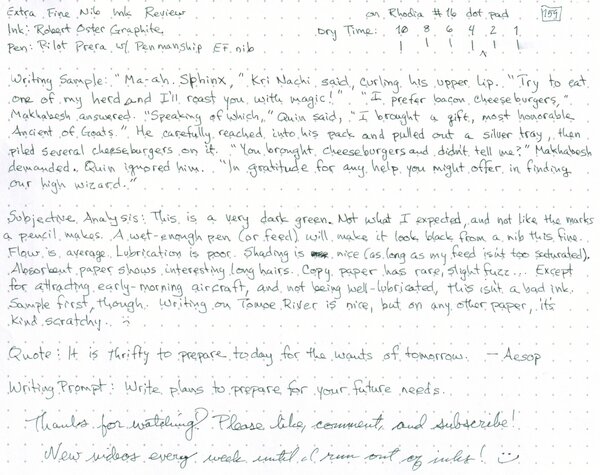 Extra Fine Nib Ink Review on Rhodia #16 dot pad 159
Ink: Robert Oster Graphite Dry Time: 10 8 6 4 2 1
Pen: Pilot Prera w/ Penmanship EF nib
Writing Sample: "Ma-ah. Sphinx," Kri Nachi said, curling his upper lip. "Try to eat
one of my herd and I'll roast you with magic!" "I prefer bacon cheeseburgers,"
Makhabesh answered. "Speaking of which," Quin said, "I brought a gift, most honorable
Ancient of Goats." He carefully reached into his pack and pulled out a silver tray, then
piled several cheeseburgers on it. "You brought cheeseburgers and didn't tell me?" Makhabesh
demanded. Quin ignored him. "In gratitude for any help you might offer in finding
our high wizard."
Subjective Analysis: This is a very dark green. Not what I expected, and not like the marks
a pencil makes. A wet-enough pen (or feed) will make it look black from a nib this fine.
Flow is average. Lubrication is poor. Shading is nice (as long as my feed isn't too saturated).
Absorbent paper shows interesting long hairs. Copy paper has rare, slight fuzz... Except
for attracting early-morning aircraft, and not being well-lubricated, this isn't a bad ink.
Sample first, though. Writing on Tomoe River is nice, but on any other paper, it's
kind scratchy. :)
Quote: It is thrifty to prepare today for the wants of tomorrow. — Aesop
Writing Prompt: Write plans to prepare for your future needs.
Thanks for watching! Please like, comment, and subscribe!
New videos every week until I run out of inks! :)